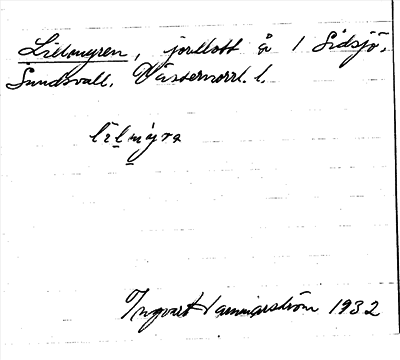 Lillmyren, jordlott å 1 Sidsjö,
Sundsvall. Västernorrl. l.
lìlmy̆ra
Ingvart Hammarström 1932